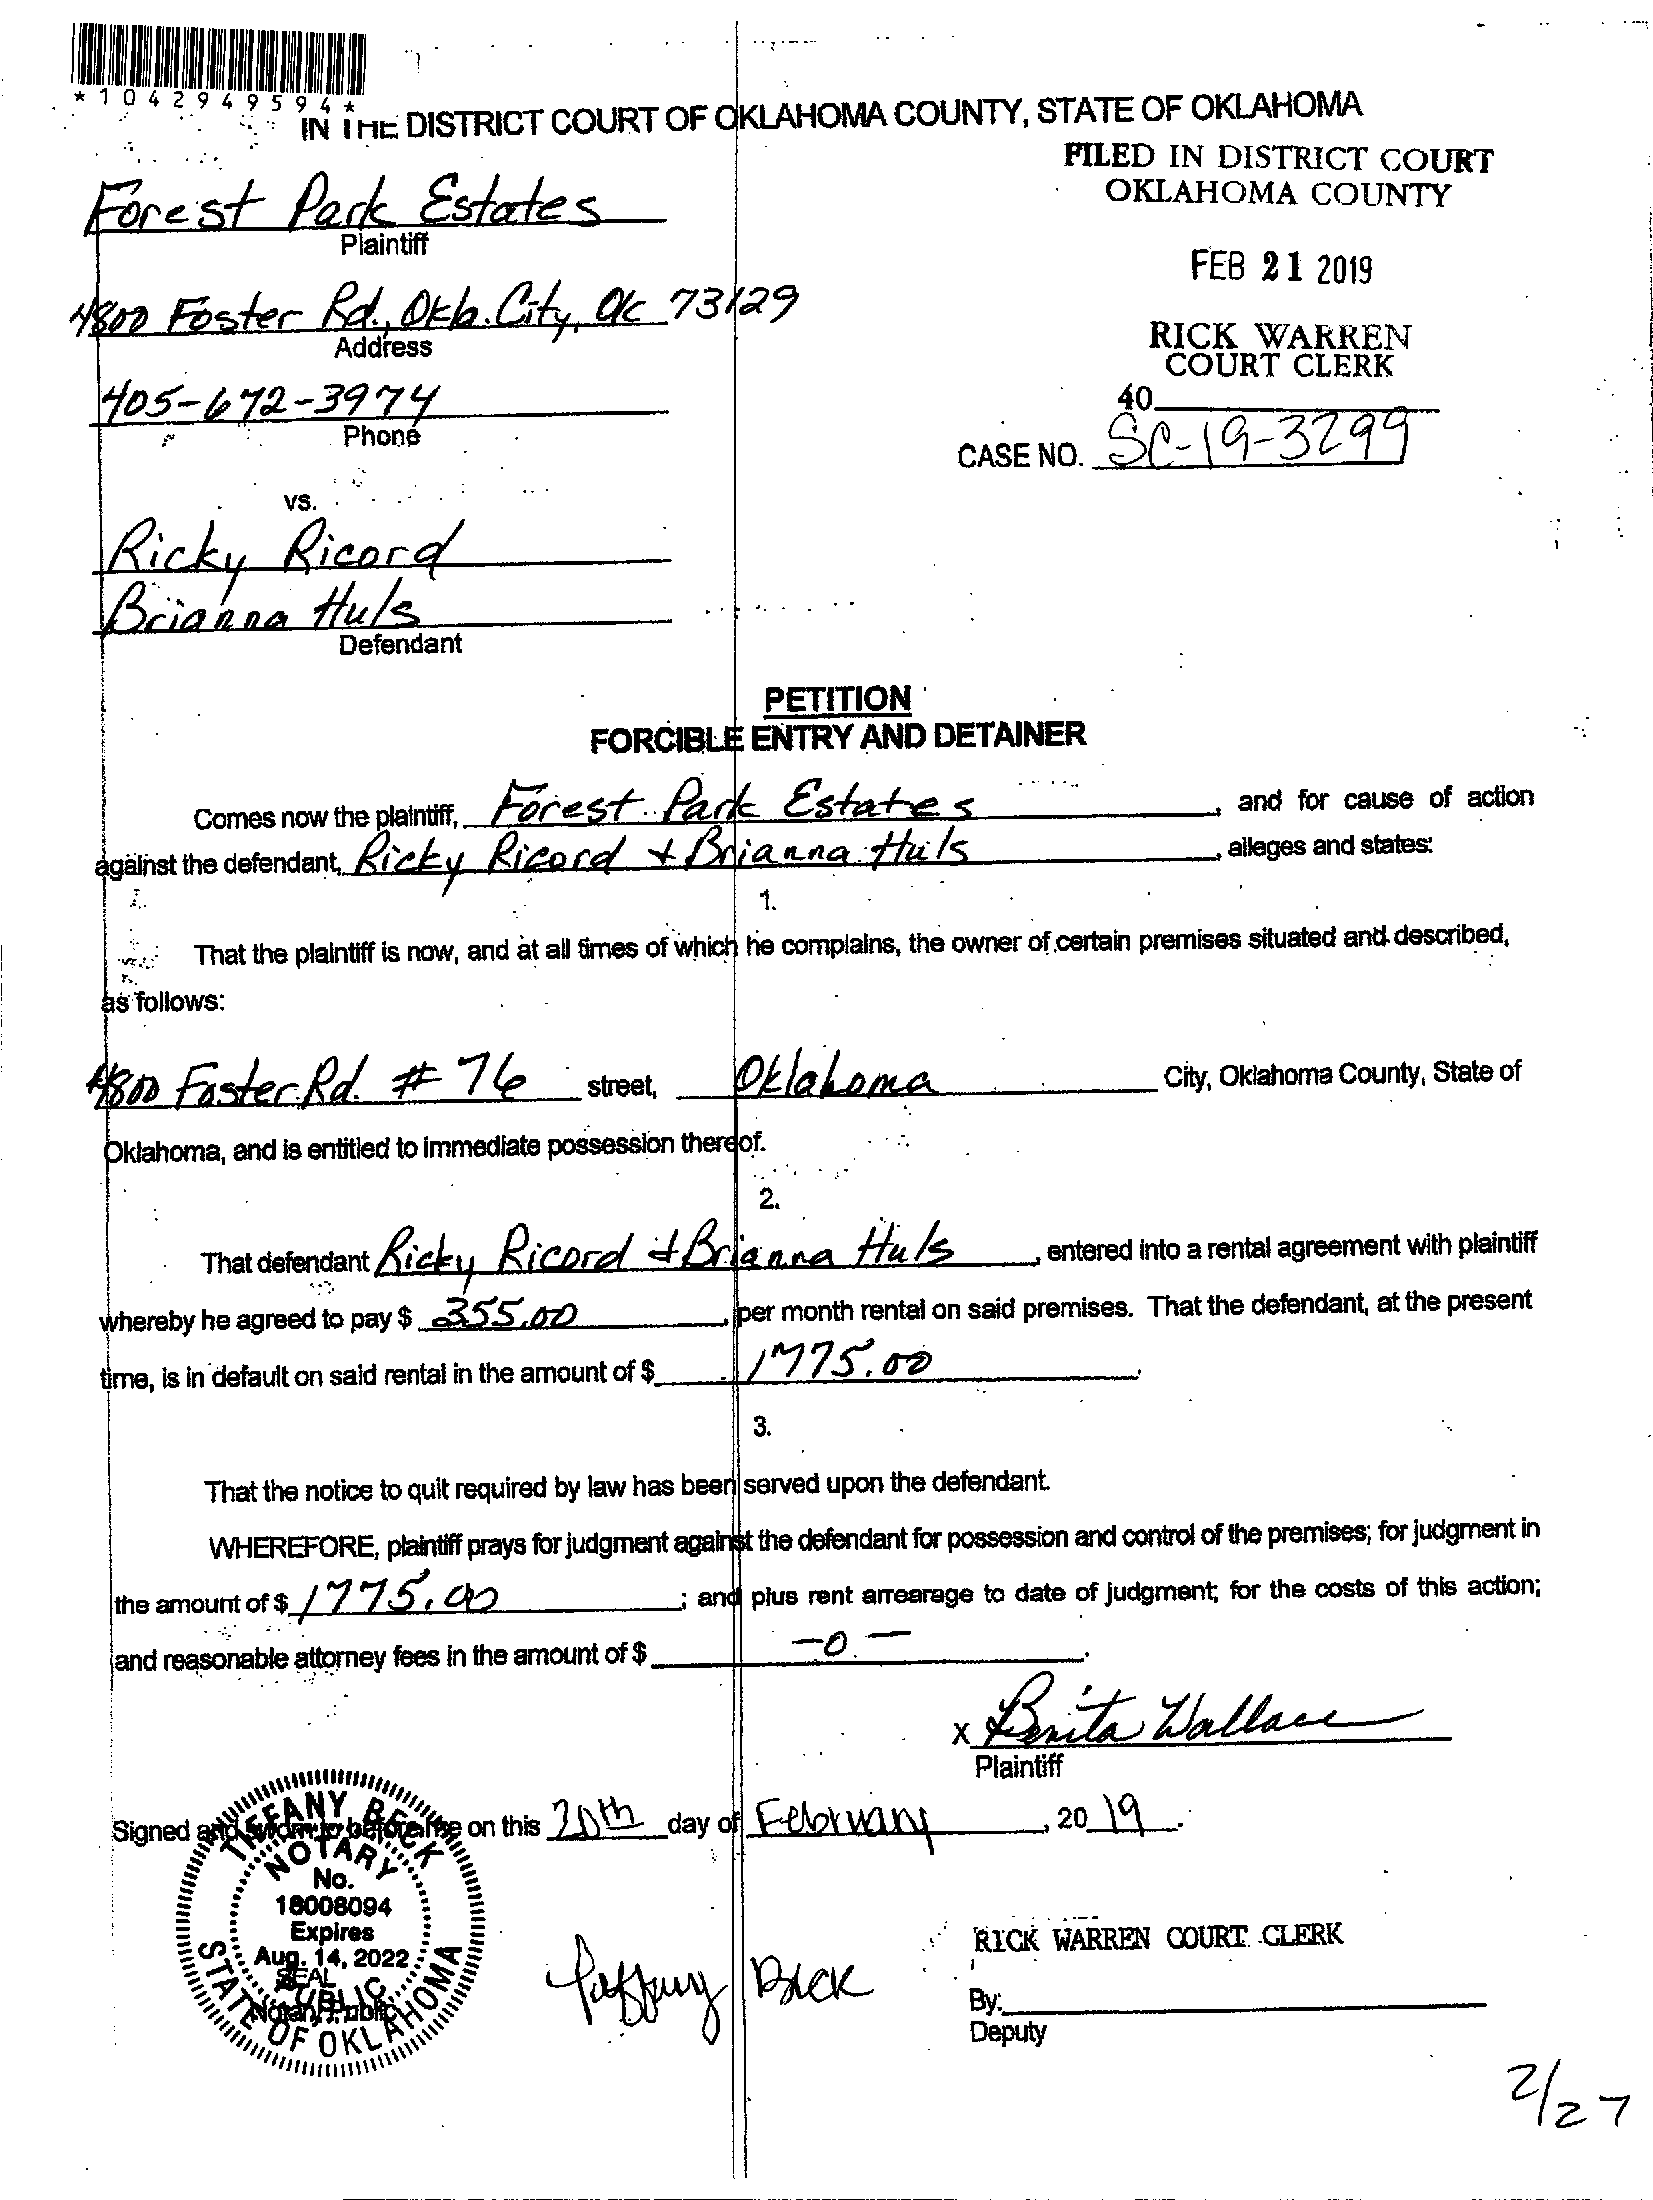 *1042949594*
IN THE DISTRICT COURT OF OKLAHOMA COUNTY, STATE OF OKLAHOMA
FILED IN DISTRICT COURT
OKLAHOMA COUNTY
FEB 21 2019
RICK WARREN
COURT CLERK
40
CASE NO. SC-19-3299
Forest Park Estates
Plaintiff
4800 Foster Rd., Okla. City, Ok 73129
Address
405-672-3974
Phone
vs.
Ricky Ricord
Brianna Huls
Defendant
PETITION
FORCIBLE ENTRY AND DETAINER
Comes now the plaintiff, Forest Park Estates, and for cause of action
against the defendant, Ricky Ricord + Brianna Huls, alleges and states:
1.
That the plaintiff is now, and at all times of which he complains, the owner of certain premises situated and described,
as follows:
4800 Foster Rd. # 76 street, Oklahoma City, Oklahoma County, State of
Oklahoma, and is entitled to immediate possession thereof.
2.
That defendant Ricky Ricord + Brianna Huls, entered into a rental agreement with plaintiff
whereby he agreed to pay $ 355.00, per month rental on said premises. That the defendant, at the present
time, is in default on said rental in the amount of $ 1775.00.
3.
That the notice to quit required by law has been served upon the defendant.
WHEREFORE, plaintiff prays for judgment against the defendant for possession and control of the premises; for judgment in
the amount of $ 1775.00; and plus rent arrearage to date of judgment; for the costs of this action;
and reasonable attorney fees in the amount of $ -0-.
x Benita Wallace
Plaintiff
Signed and sworn to before me on this 20th day of February, 2019.
TIFFANY BECK
NOTARY
No.
18008094
Expires
Aug. 14, 2022
SEAL
PUBLIC
Notary Public
STATE OF OKLAHOMA
Tiffany Beck
RICK WARREN COURT CLERK
By:
Deputy
2/27